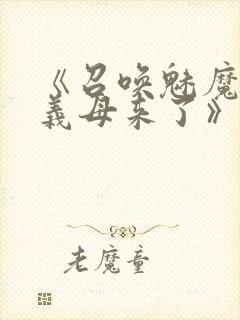 《召唤魅魔
义母来了》
老魔童